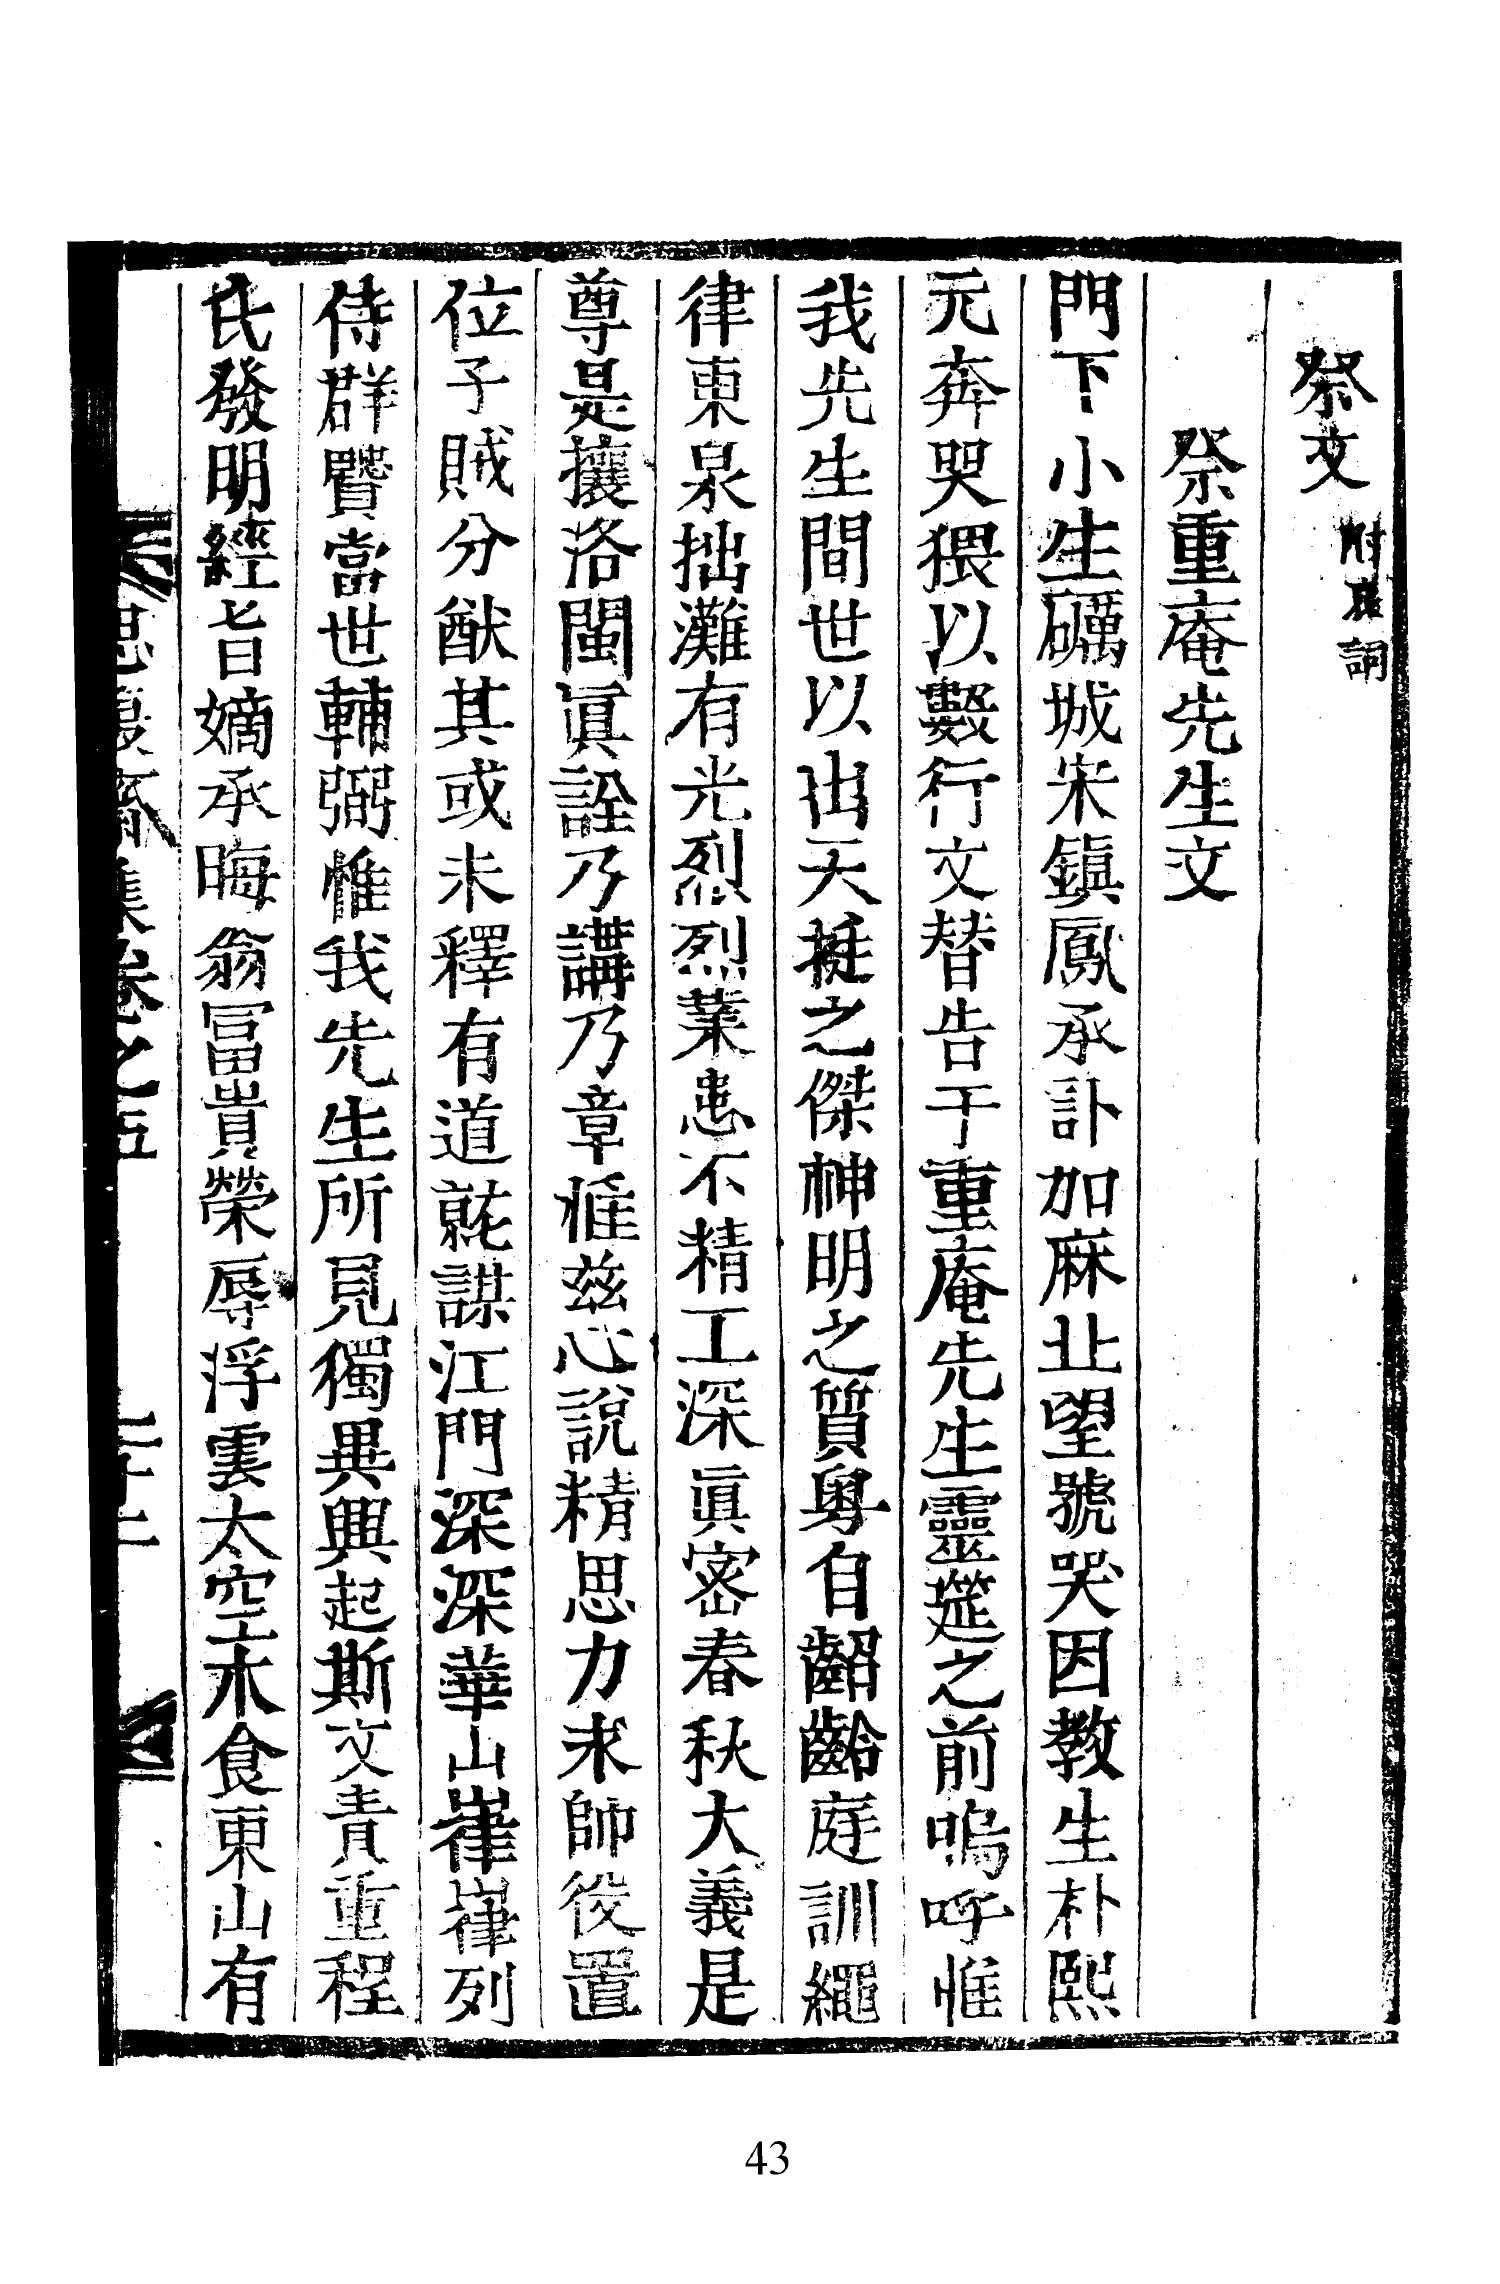 祭文 附哀詞
祭重庵先生文
門下小生礪城宋鎭鳳承訃加麻北望號哭因教生朴熙
元奔哭猥以數行文替告于重庵先生靈筵之前嗚呼惟
我先生間世以出天挺之傑神明之質粤自齠齡庭訓繩
律東泉拙灘有光烈烈業患不精工深眞密春秋大義是
尊是攘洛閩眞詮乃講乃章惟玆心說精思力求帥役置
位子賊分猷其或未釋有道就謀江門深深華山嵂嵂列
侍群賢當世輔弼惟我先生所見獨異興起斯文責重程
氏發明經旨嫡承晦翁冨貴榮辱浮雲太空木食東山有
思復齋集卷之五
二十二
43